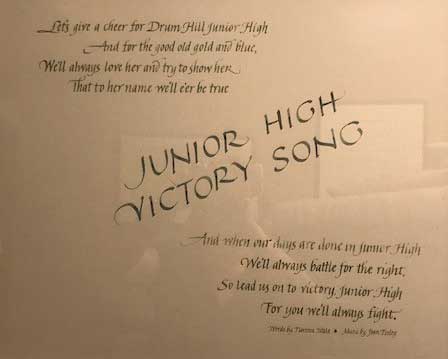 Let's give a cheer for Drum Hill Junior High
And for the good old gold and blue,
We'll always love her and try to show her
That to her name we'll e'er be true
JUNIOR HIGH
VICTORY SONG
And when our days are done in Junior High
We'll always battle for the right,
So lead us on to victory, Junior High
For you we'll always fight.
Words by • Music by Joan